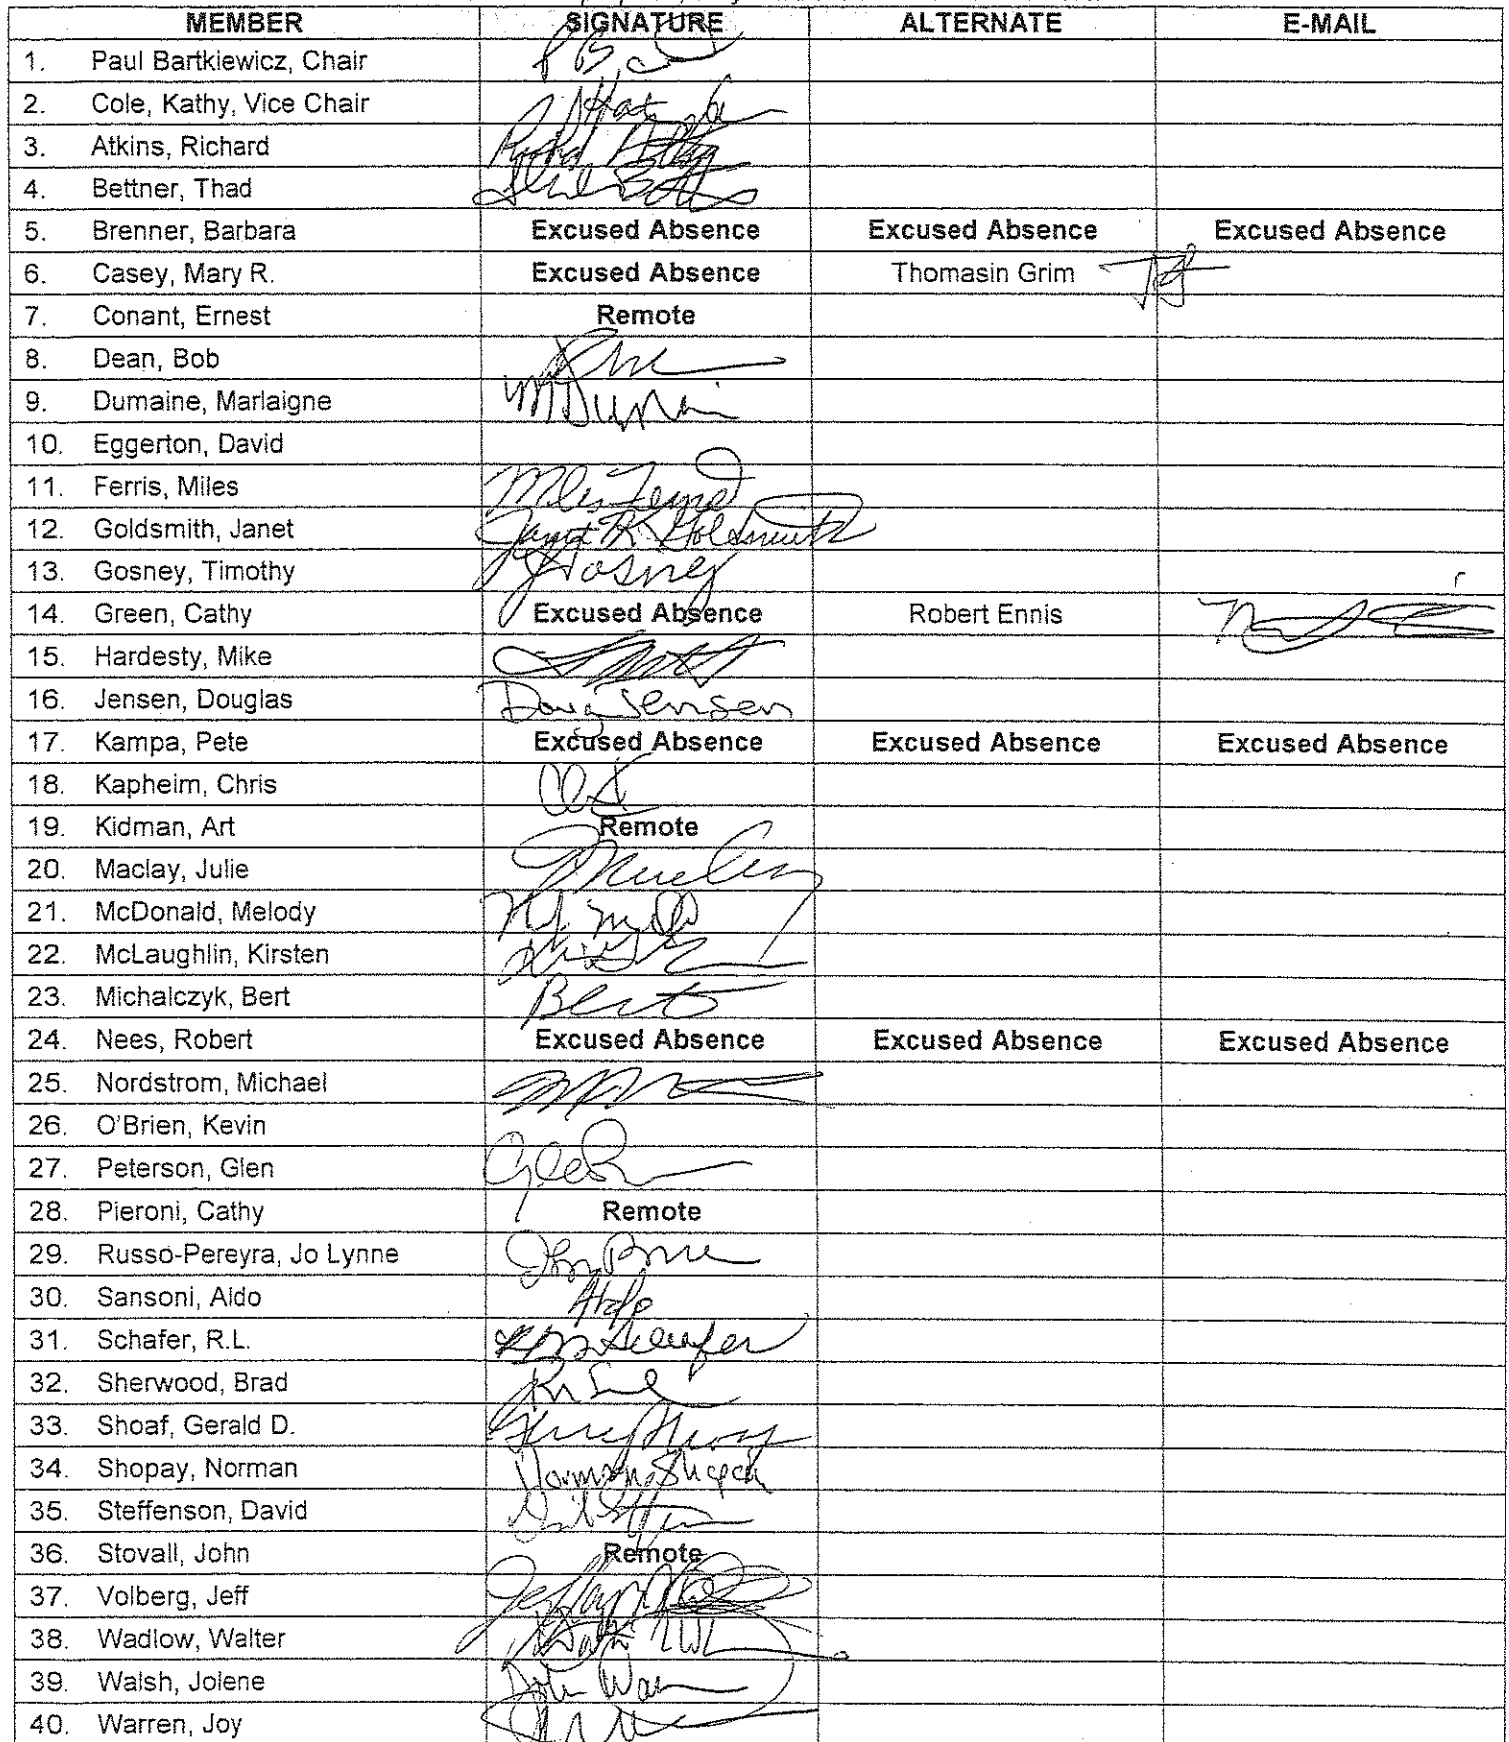 MEMBER SIGNATURE ALTERNATE E-MAIL
1. Paul Bartkiewicz, Chair
2. Cole, Kathy, Vice Chair
3. Atkins, Richard
4. Bettner, Thad
5. Brenner, Barbara Excused Absence Excused Absence Excused Absence
6. Casey, Mary R. Excused Absence Thomasin Grim
7. Conant, Ernest Remote
8. Dean, Bob
9. Dumaine, Marlaigne
10. Eggerton, David
11. Ferris, Miles
12. Goldsmith, Janet Janet R. Goldsmith
13. Gosney, Timothy Gosney
14. Green, Cathy Excused Absence Robert Ennis
15. Hardesty, Mike
16. Jensen, Douglas Doug Jensen
17. Kampa, Pete Excused Absence Excused Absence Excused Absence
18. Kapheim, Chris
19. Kidman, Art Remote
20. Maclay, Julie
21. McDonald, Melody
22. McLaughlin, Kirsten
23. Michalczyk, Bert Bert
24. Nees, Robert Excused Absence Excused Absence Excused Absence
25. Nordstrom, Michael
26. O'Brien, Kevin
27. Peterson, Glen
28. Pieroni, Cathy Remote
29. Russo-Pereyra, Jo Lynne
30. Sansoni, Aldo
31. Schafer, R.L. Schafer
32. Sherwood, Brad
33. Shoaf, Gerald D.
34. Shopay, Norman Norman Shopay
35. Steffenson, David
36. Stovall, John Remote
37. Volberg, Jeff
38. Wadlow, Walter
39. Walsh, Jolene
40. Warren, Joy